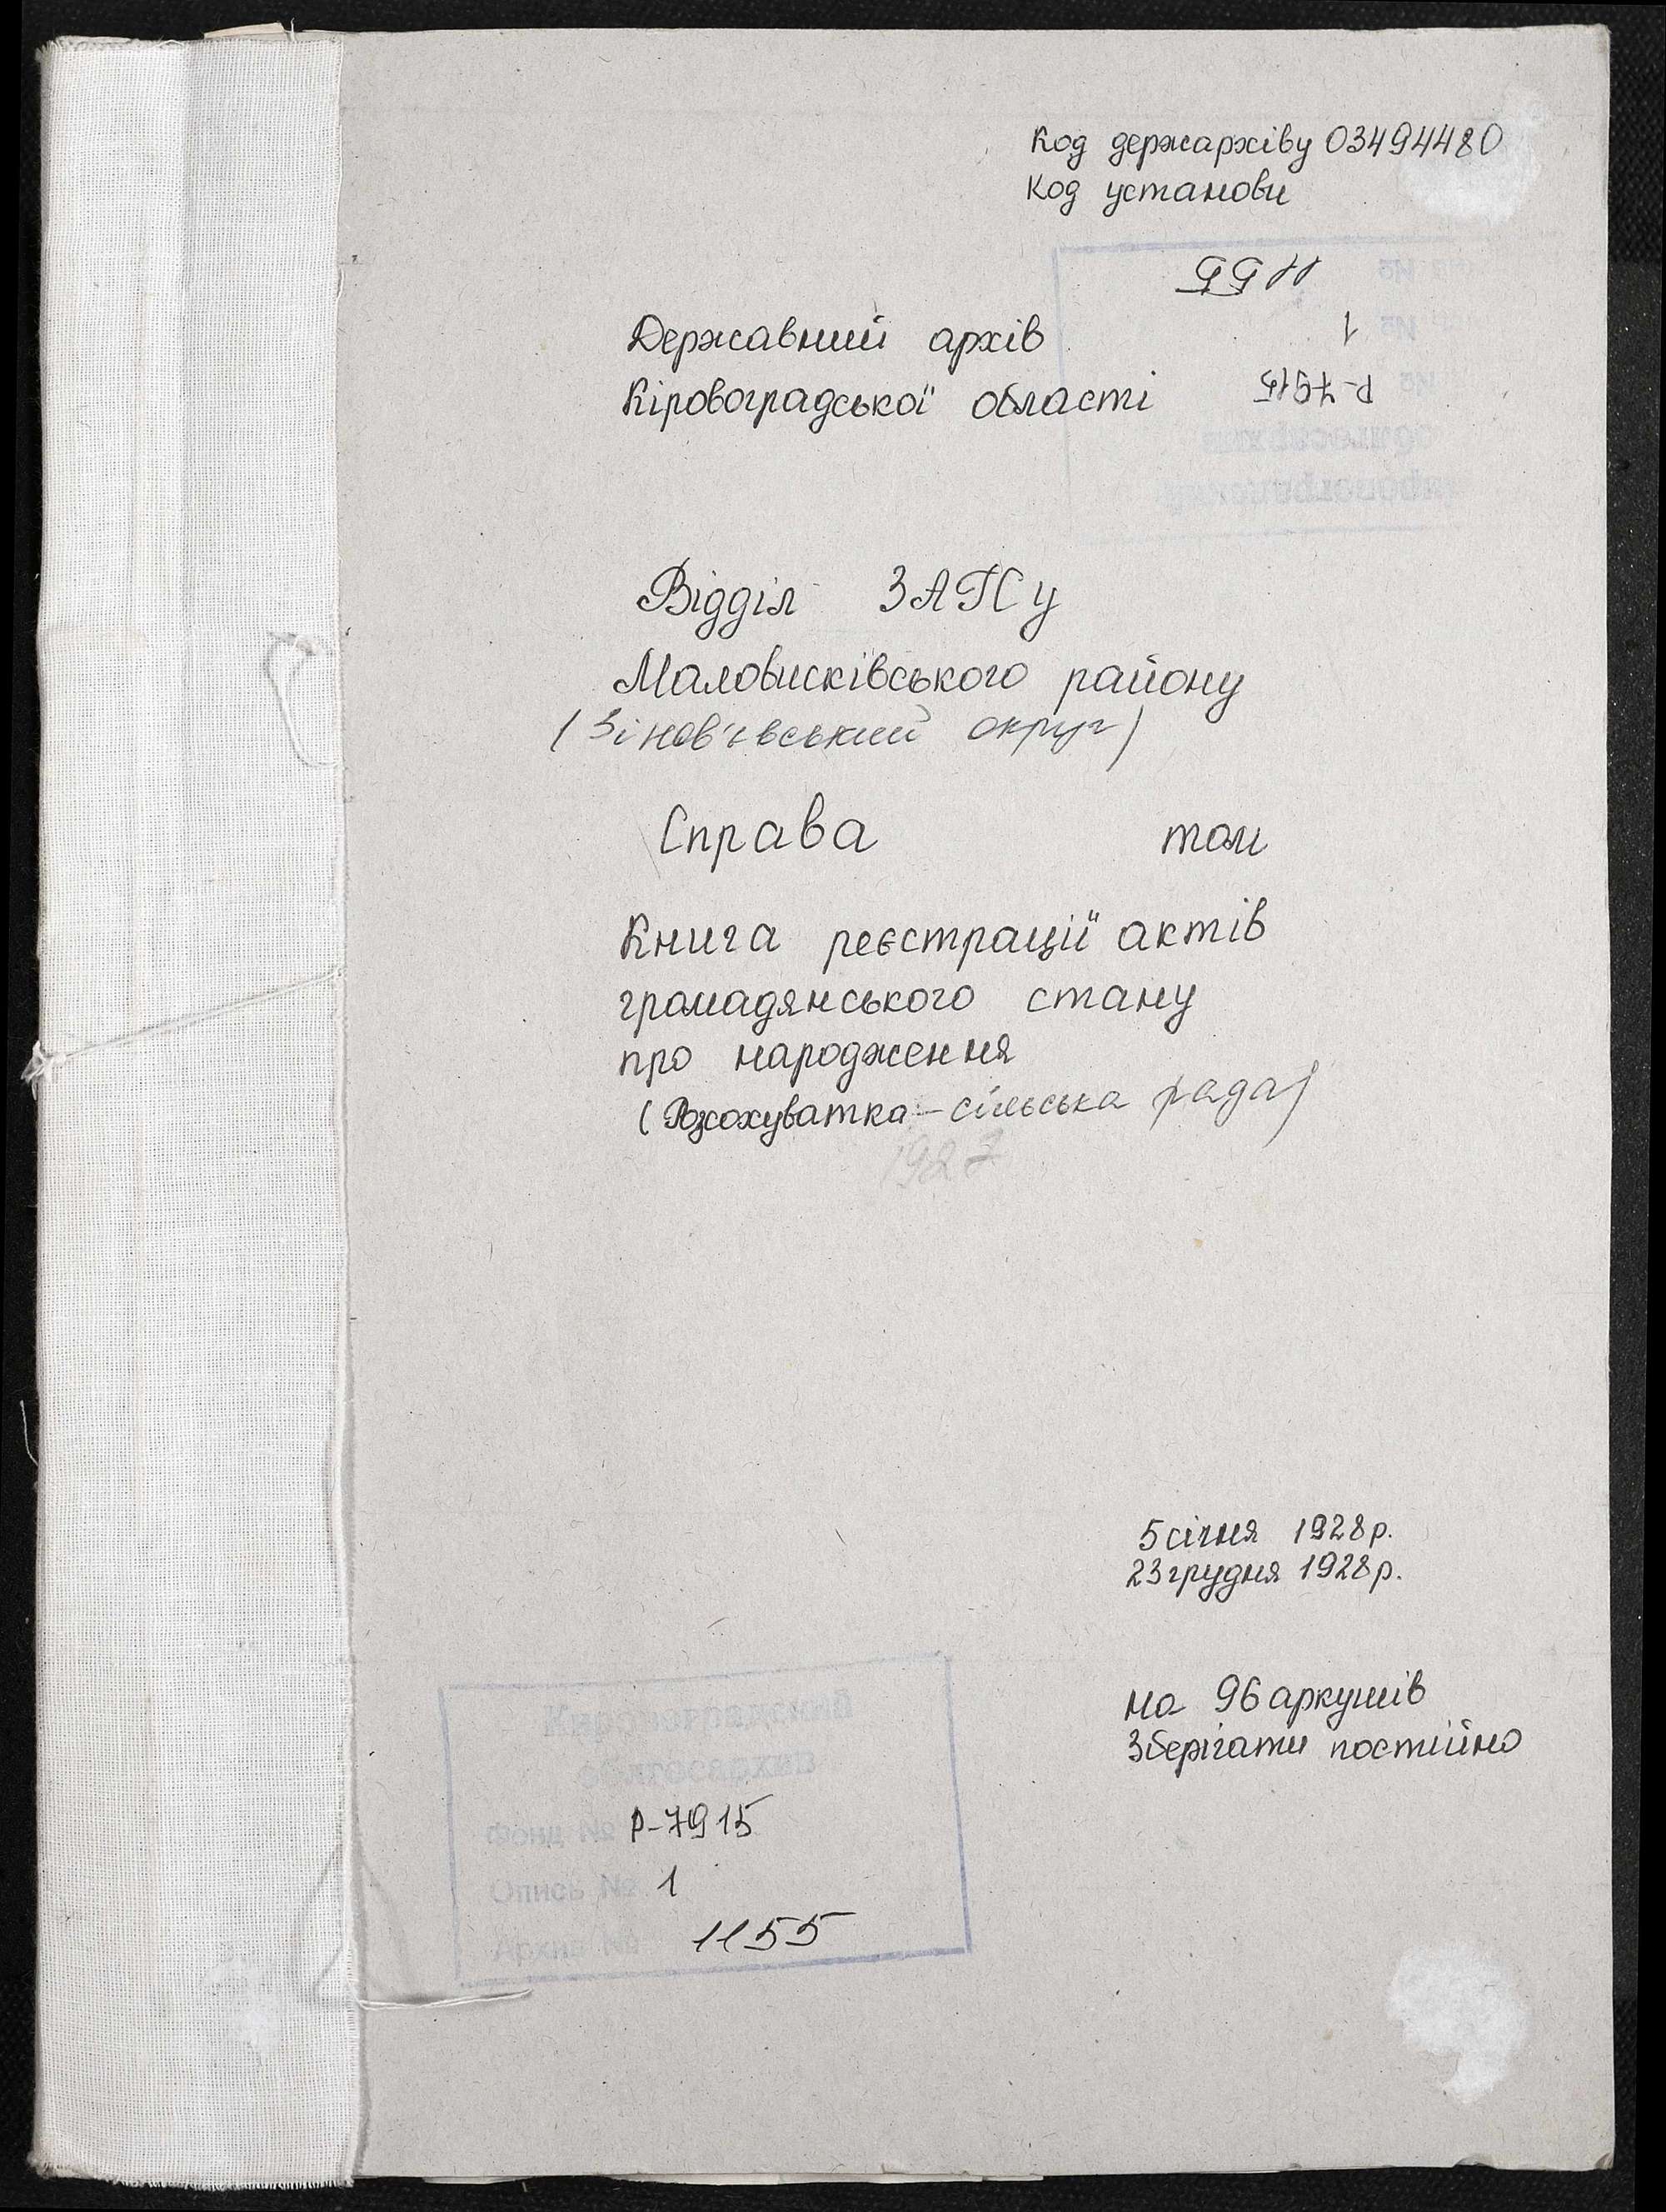 Код держархіву 03494480
Код установи
1155
1
Р-7915
Державний архів
Кіровоградської області
Відділ ЗАГСу
Маловисківського району
(Зінов'ївський округ)
Справа том
Книга реєстрації актів
громадянського стану
про народження
(Розсохуватка - сільська рада)
1927
5 січня 1928 р.
23 грудня 1928 р.
на 96 аркушів
Зберігати постійно
Кировоградский
облгосархив
Фонд № Р-7915
Опись № 1
Архив № 1155